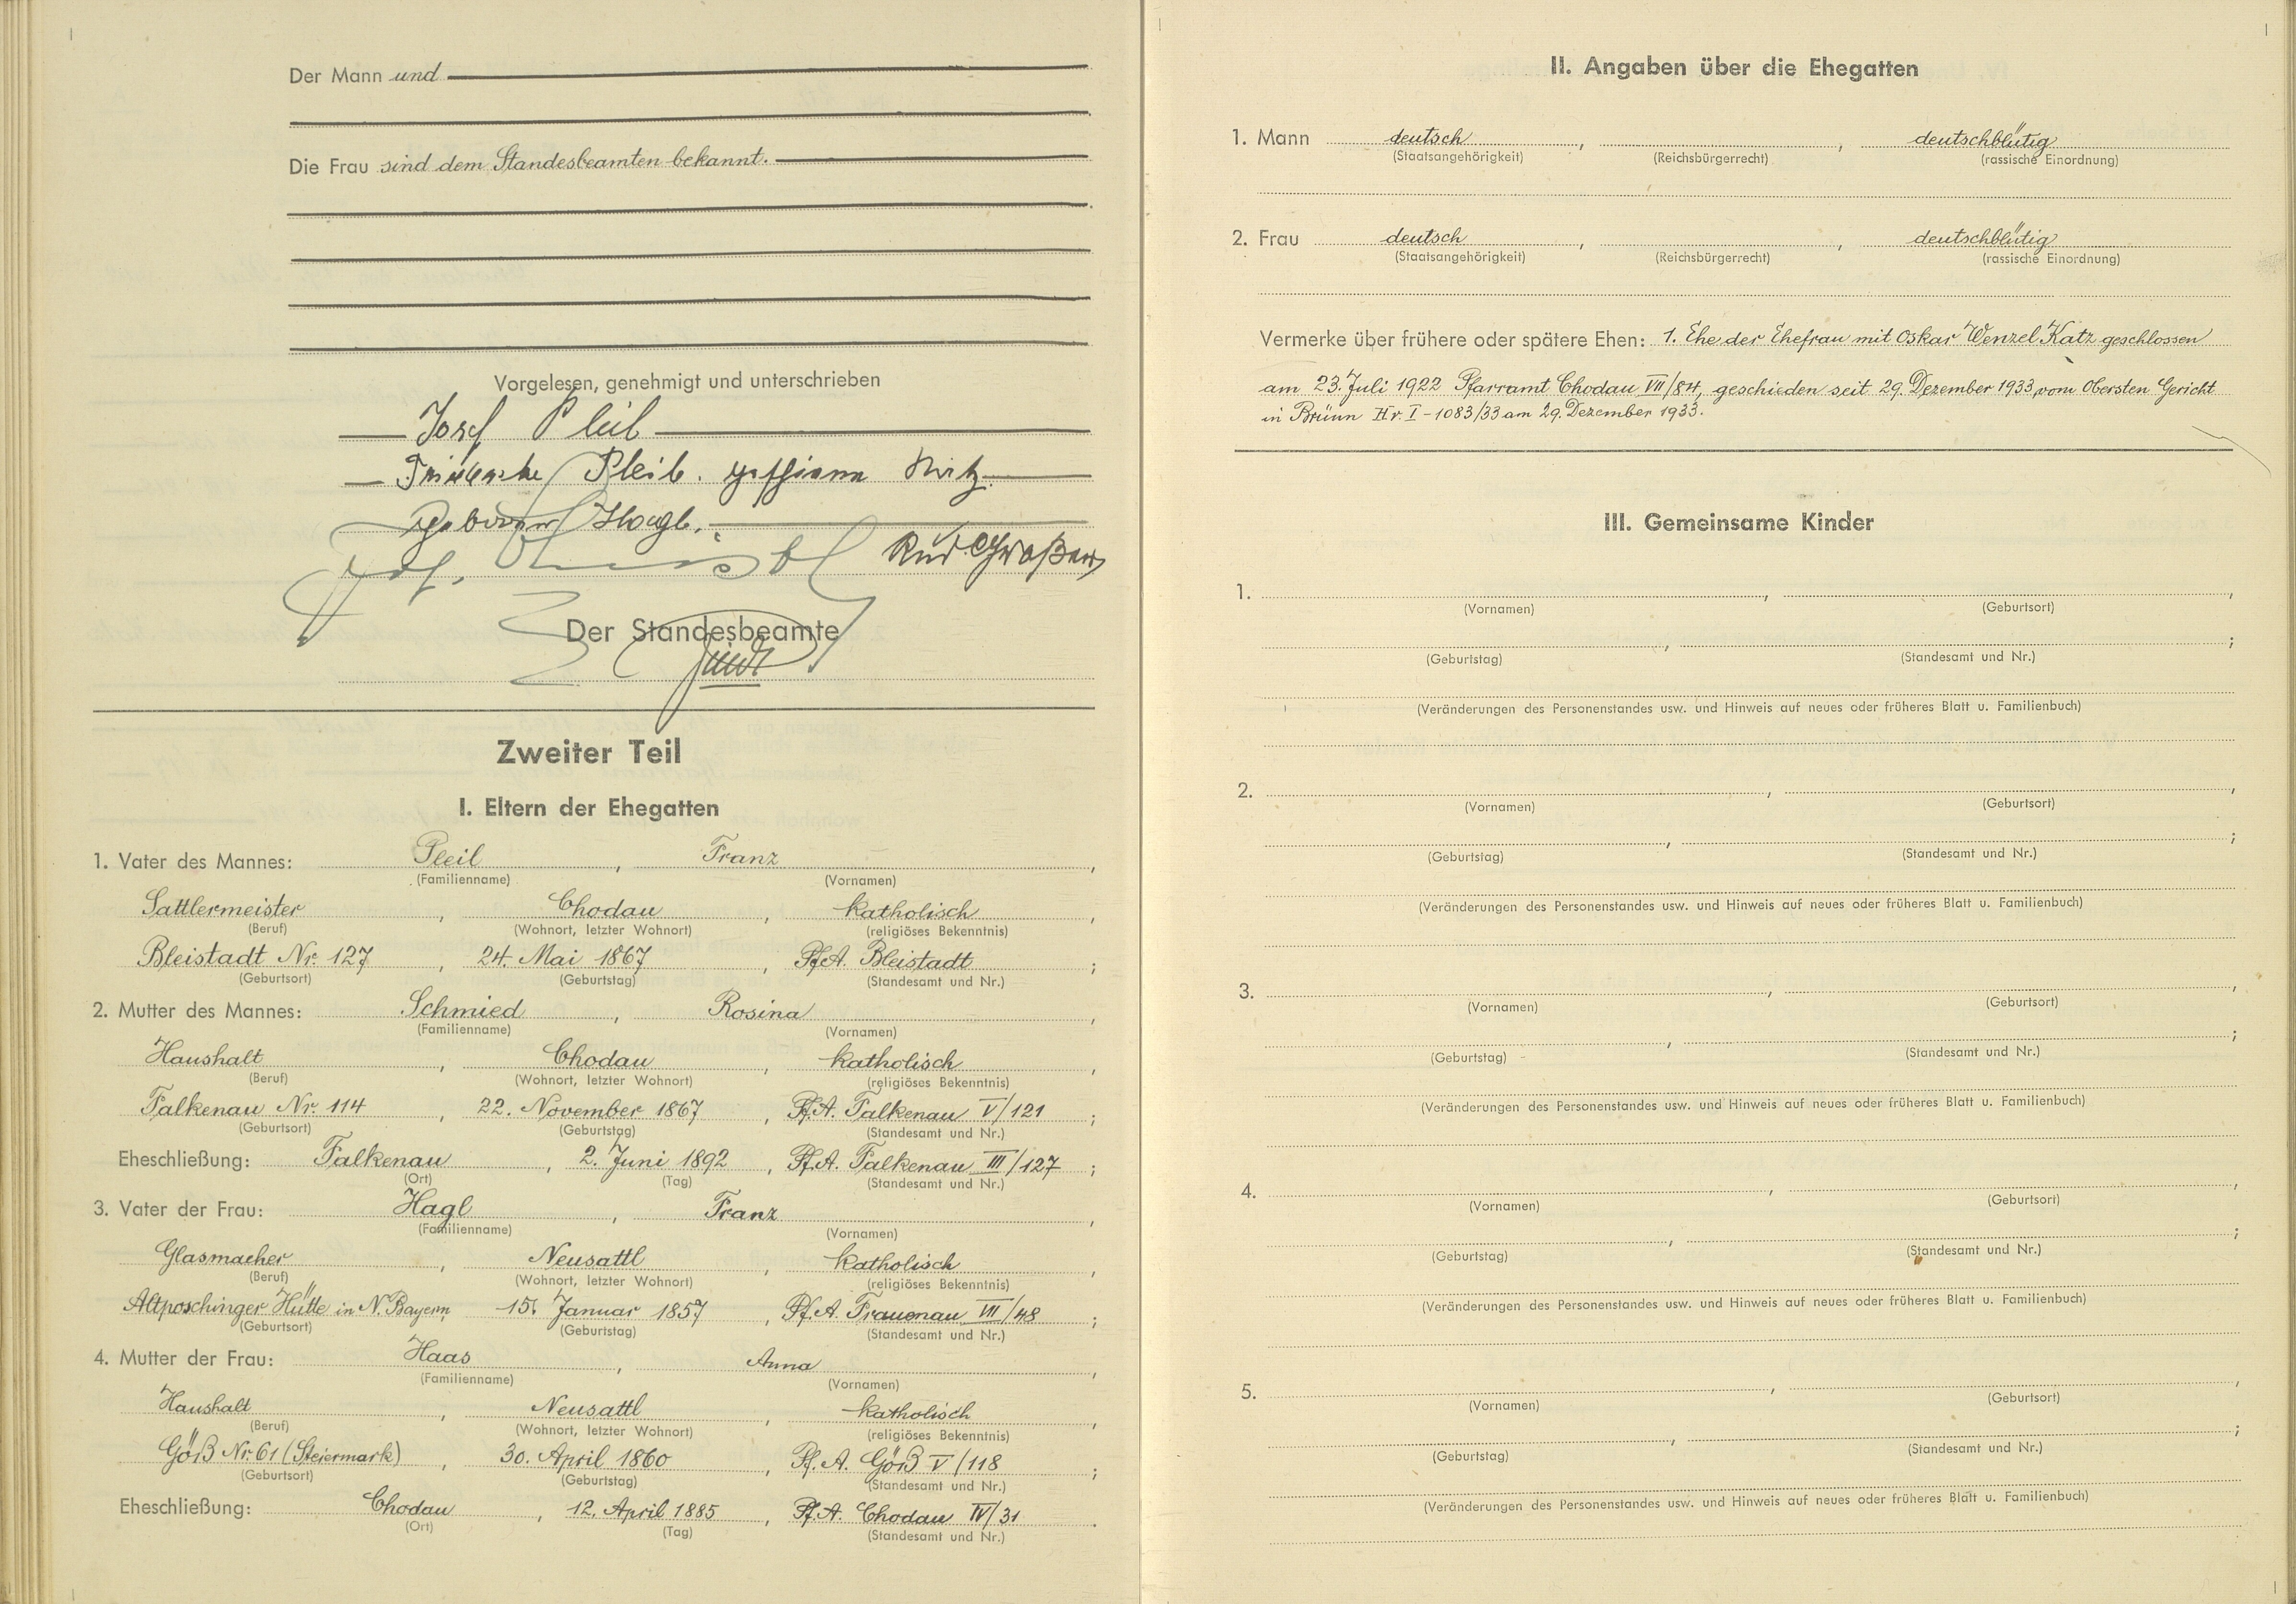 Der Mann und
Die Frau sind dem Standesbeamten bekannt.
Vorgelesen, genehmigt und unterschrieben
Josef Pleil
Pleil.
Hagl.
Der Standesbeamte
Zweiter Teil
I. Eltern der Ehegatten
1. Vater des Mannes: Pleil, Franz,
(Familienname) (Vornamen)
Sattlermeister, Chodau, katholisch,
(Beruf) (Wohnort, letzter Wohnort) (religiöses Bekenntnis)
Bleistadt Nr. 127, 24. Mai 1867, Pf.A. Bleistadt;
(Geburtsort) (Geburtstag) (Standesamt und Nr.)
2. Mutter des Mannes: Schmied, Rosina,
(Familienname) (Vornamen)
Haushalt, Chodau, katholisch,
(Beruf) (Wohnort, letzter Wohnort) (religiöses Bekenntnis)
Falkenau Nr. 114, 22. November 1867, Pf.A. Falkenau V/121;
(Geburtsort) (Geburtstag) (Standesamt und Nr.)
Eheschließung: Falkenau, 2. Juni 1892, Pf.A. Falkenau III/127;
(Ort) (Tag) (Standesamt und Nr.)
3. Vater der Frau: Hagl, Franz,
(Familienname) (Vornamen)
Glasmacher, Neusattl, katholisch,
(Beruf) (Wohnort, letzter Wohnort) (religiöses Bekenntnis)
Altposchinger Hütte in N. Bayern, 15. Januar 1857, Pf.A. Frauenau VII/48;
(Geburtsort) (Geburtstag) (Standesamt und Nr.)
4. Mutter der Frau: Haas, Anna,
(Familienname) (Vornamen)
Haushalt, Neusattl, katholisch,
(Beruf) (Wohnort, letzter Wohnort) (religiöses Bekenntnis)
Göß Nr. 61 (Steiermark), 30. April 1860, Pf. A. Göß V/118;
(Geburtsort) (Geburtstag) (Standesamt und Nr.)
Eheschließung: Chodau, 12. April 1885, Pf.A. Chodau IV/31.
(Ort) (Tag) (Standesamt und Nr.)
II. Angaben über die Ehegatten
1. Mann deutsch, , deutschblütig
(Staatsangehörigkeit) (Reichsbürgerrecht) (rassische Einordnung)
2. Frau deutsch, , deutschblütig
(Staatsangehörigkeit) (Reichsbürgerrecht) (rassische Einordnung)
Vermerke über frühere oder spätere Ehen: 1. Ehe der Ehefrau mit Oskar Wenzel Katz geschlossen
am 23. Juli 1922 Pfarramt Chodau VII/84, geschieden seit 29. Dezember 1933 vom Obersten Gericht
in Brünn I - 1083/33 am 29. Dezember 1933.
III. Gemeinsame Kinder
1. , ,
(Vornamen) (Geburtsort)
, ;
(Geburtstag) (Standesamt und Nr.)
(Veränderungen des Personenstandes usw. und Hinweis auf neues oder früheres Blatt u. Familienbuch)
2. , ,
(Vornamen) (Geburtsort)
, ;
(Geburtstag) (Standesamt und Nr.)
(Veränderungen des Personenstandes usw. und Hinweis auf neues oder früheres Blatt u. Familienbuch)
3. , ,
(Vornamen) (Geburtsort)
, ;
(Geburtstag) (Standesamt und Nr.)
(Veränderungen des Personenstandes usw. und Hinweis auf neues oder früheres Blatt u. Familienbuch)
4. , ,
(Vornamen) (Geburtsort)
, ;
(Geburtstag) (Standesamt und Nr.)
(Veränderungen des Personenstandes usw. und Hinweis auf neues oder früheres Blatt u. Familienbuch)
5. , ,
(Vornamen) (Geburtsort)
, ;
(Geburtstag) (Standesamt und Nr.)
(Veränderungen des Personenstandes usw. und Hinweis auf neues oder früheres Blatt u. Familienbuch)